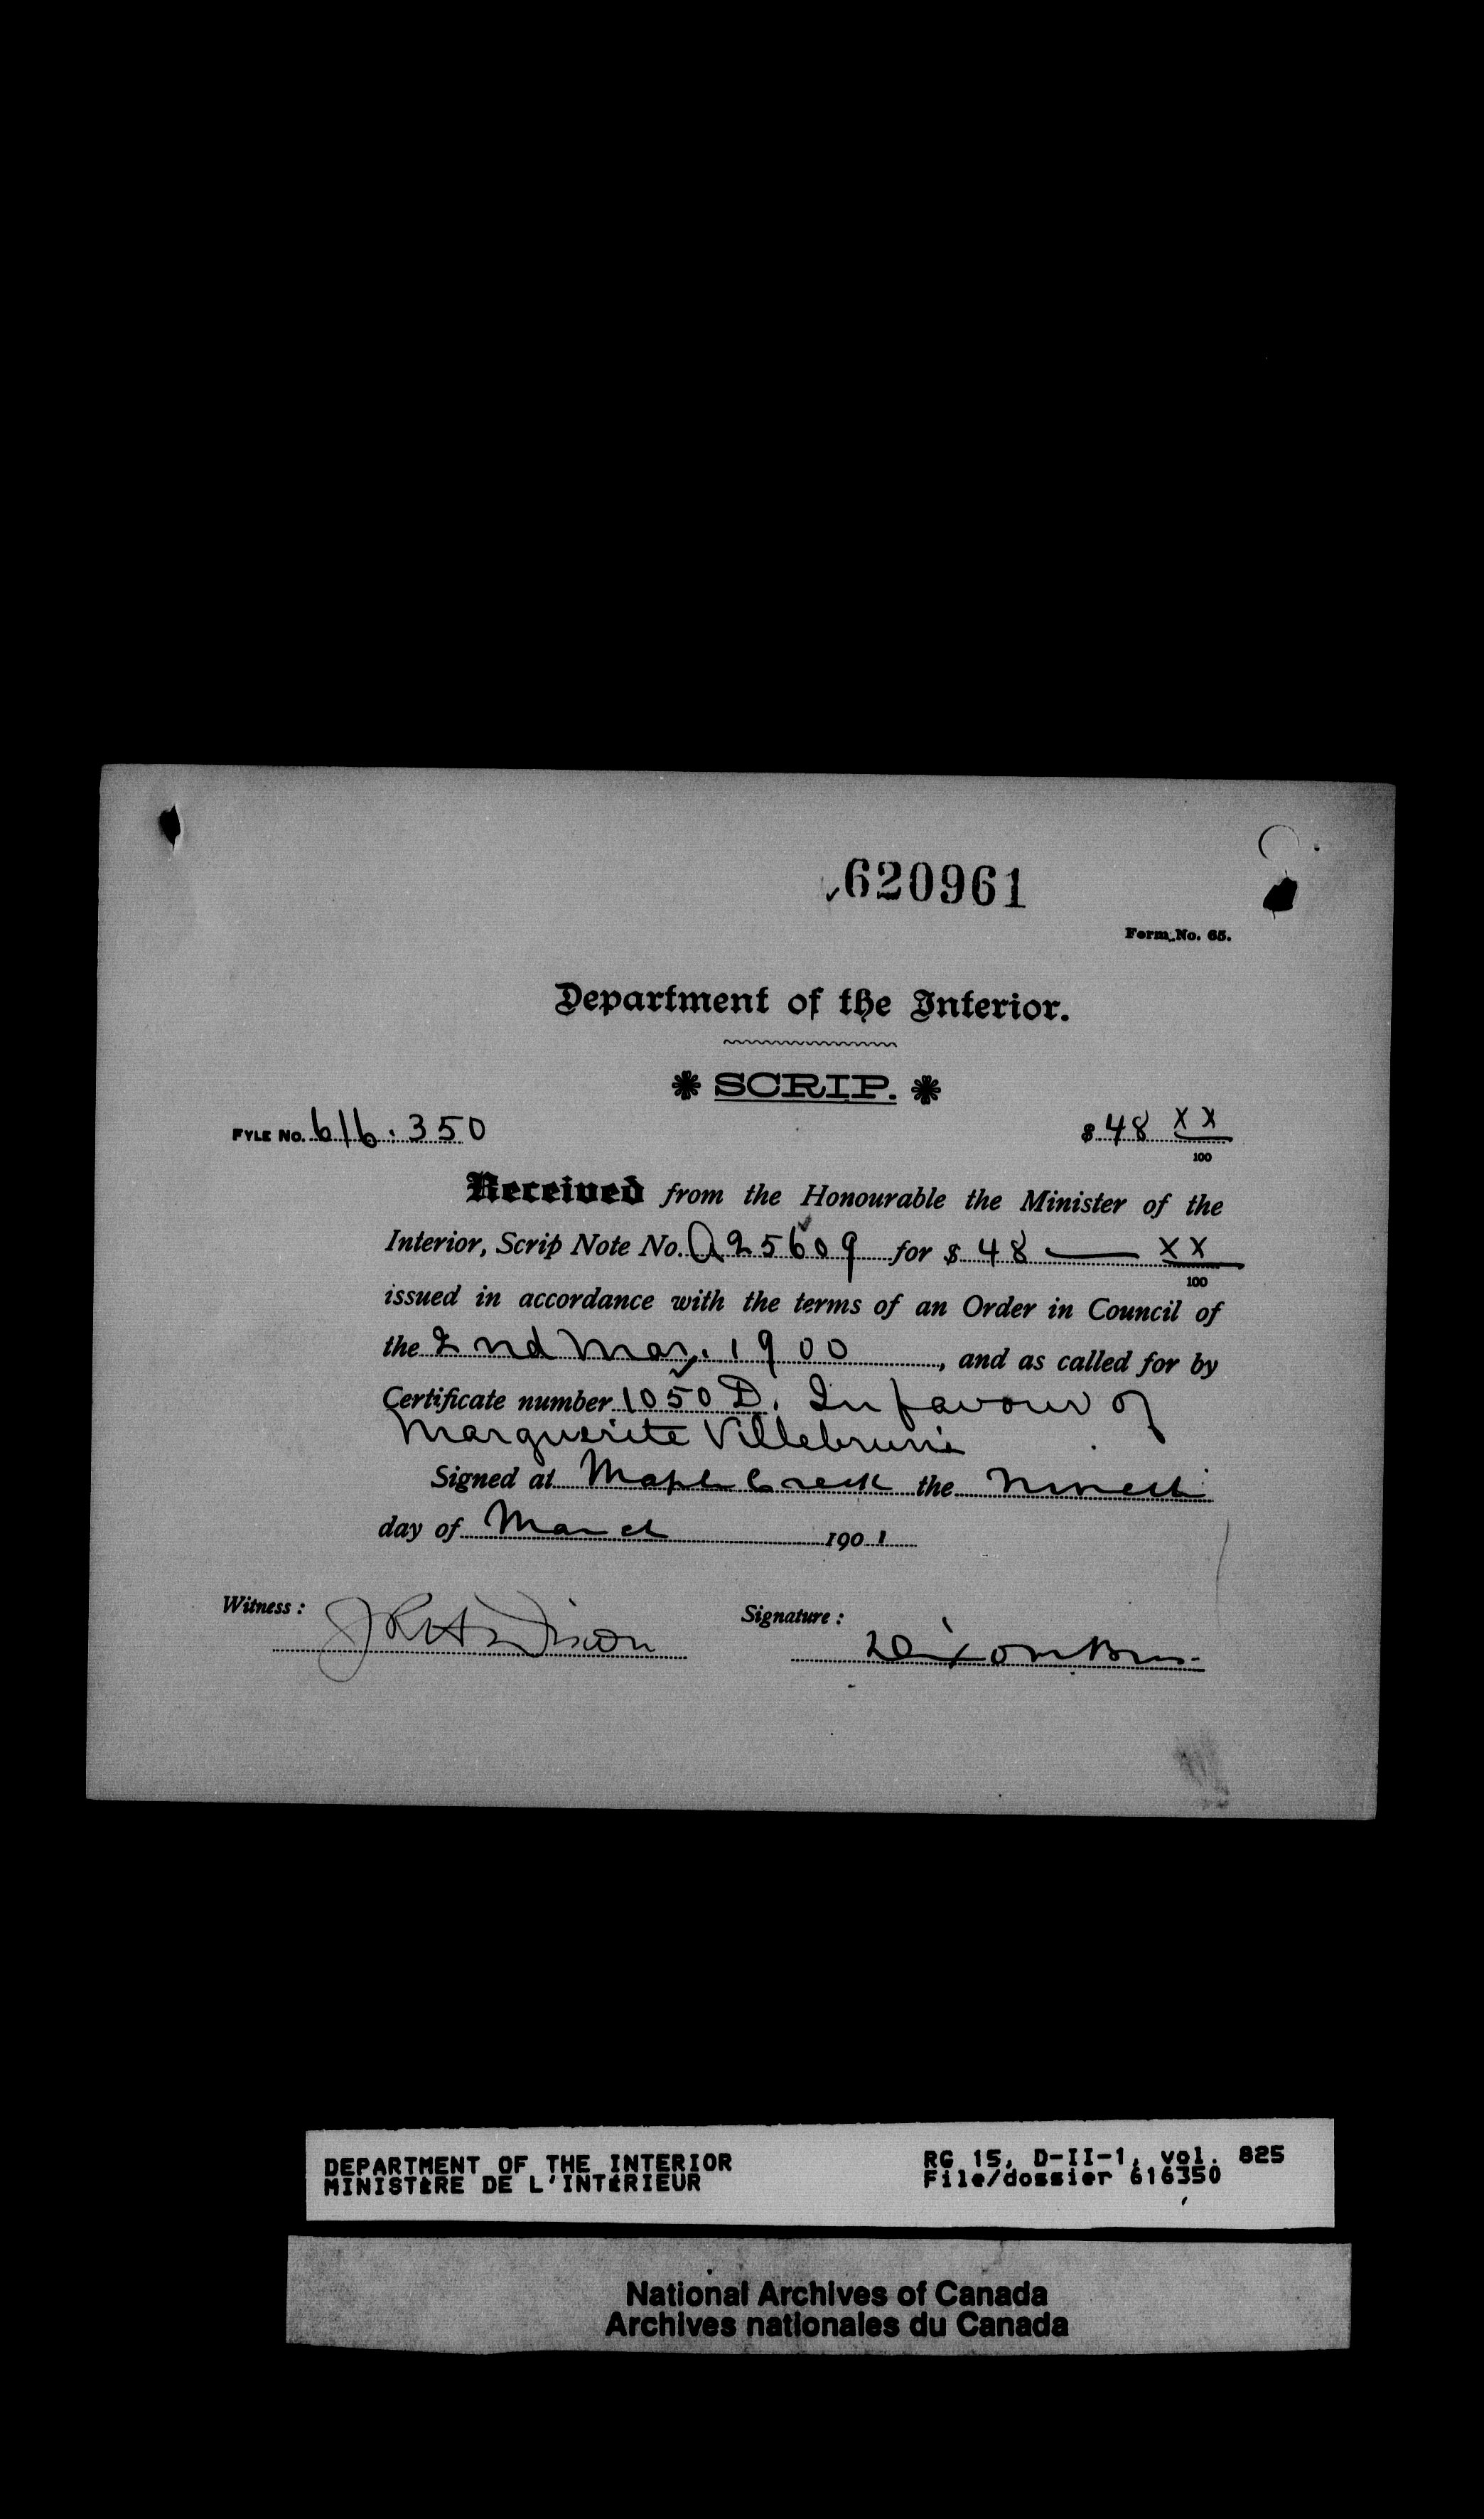 620961
Form No. 65.
Department of the Interior.
SCRIP.
FYLE No. 616.350 $ 48 XX/100
Received from the Honourable the Minister of the
Interior, Scrip Note No. A25609 for $ 48 XX/100
issued in accordance with the terms of an Order in Council of
the 2nd May. 1900, and as called for by
Certificate number 1050 D. In favour of
Marguerite Villebrune
Signed at Maple Creek the Nineth
day of March 1901
Witness: Signature:
Dixon Bros.
DEPARTMENT OF THE INTERIOR RG 15, D-II-1, vol. 825
MINISTÈRE DE L'INTÉRIEUR File/dossier 616350
National Archives of Canada
Archives nationales du Canada